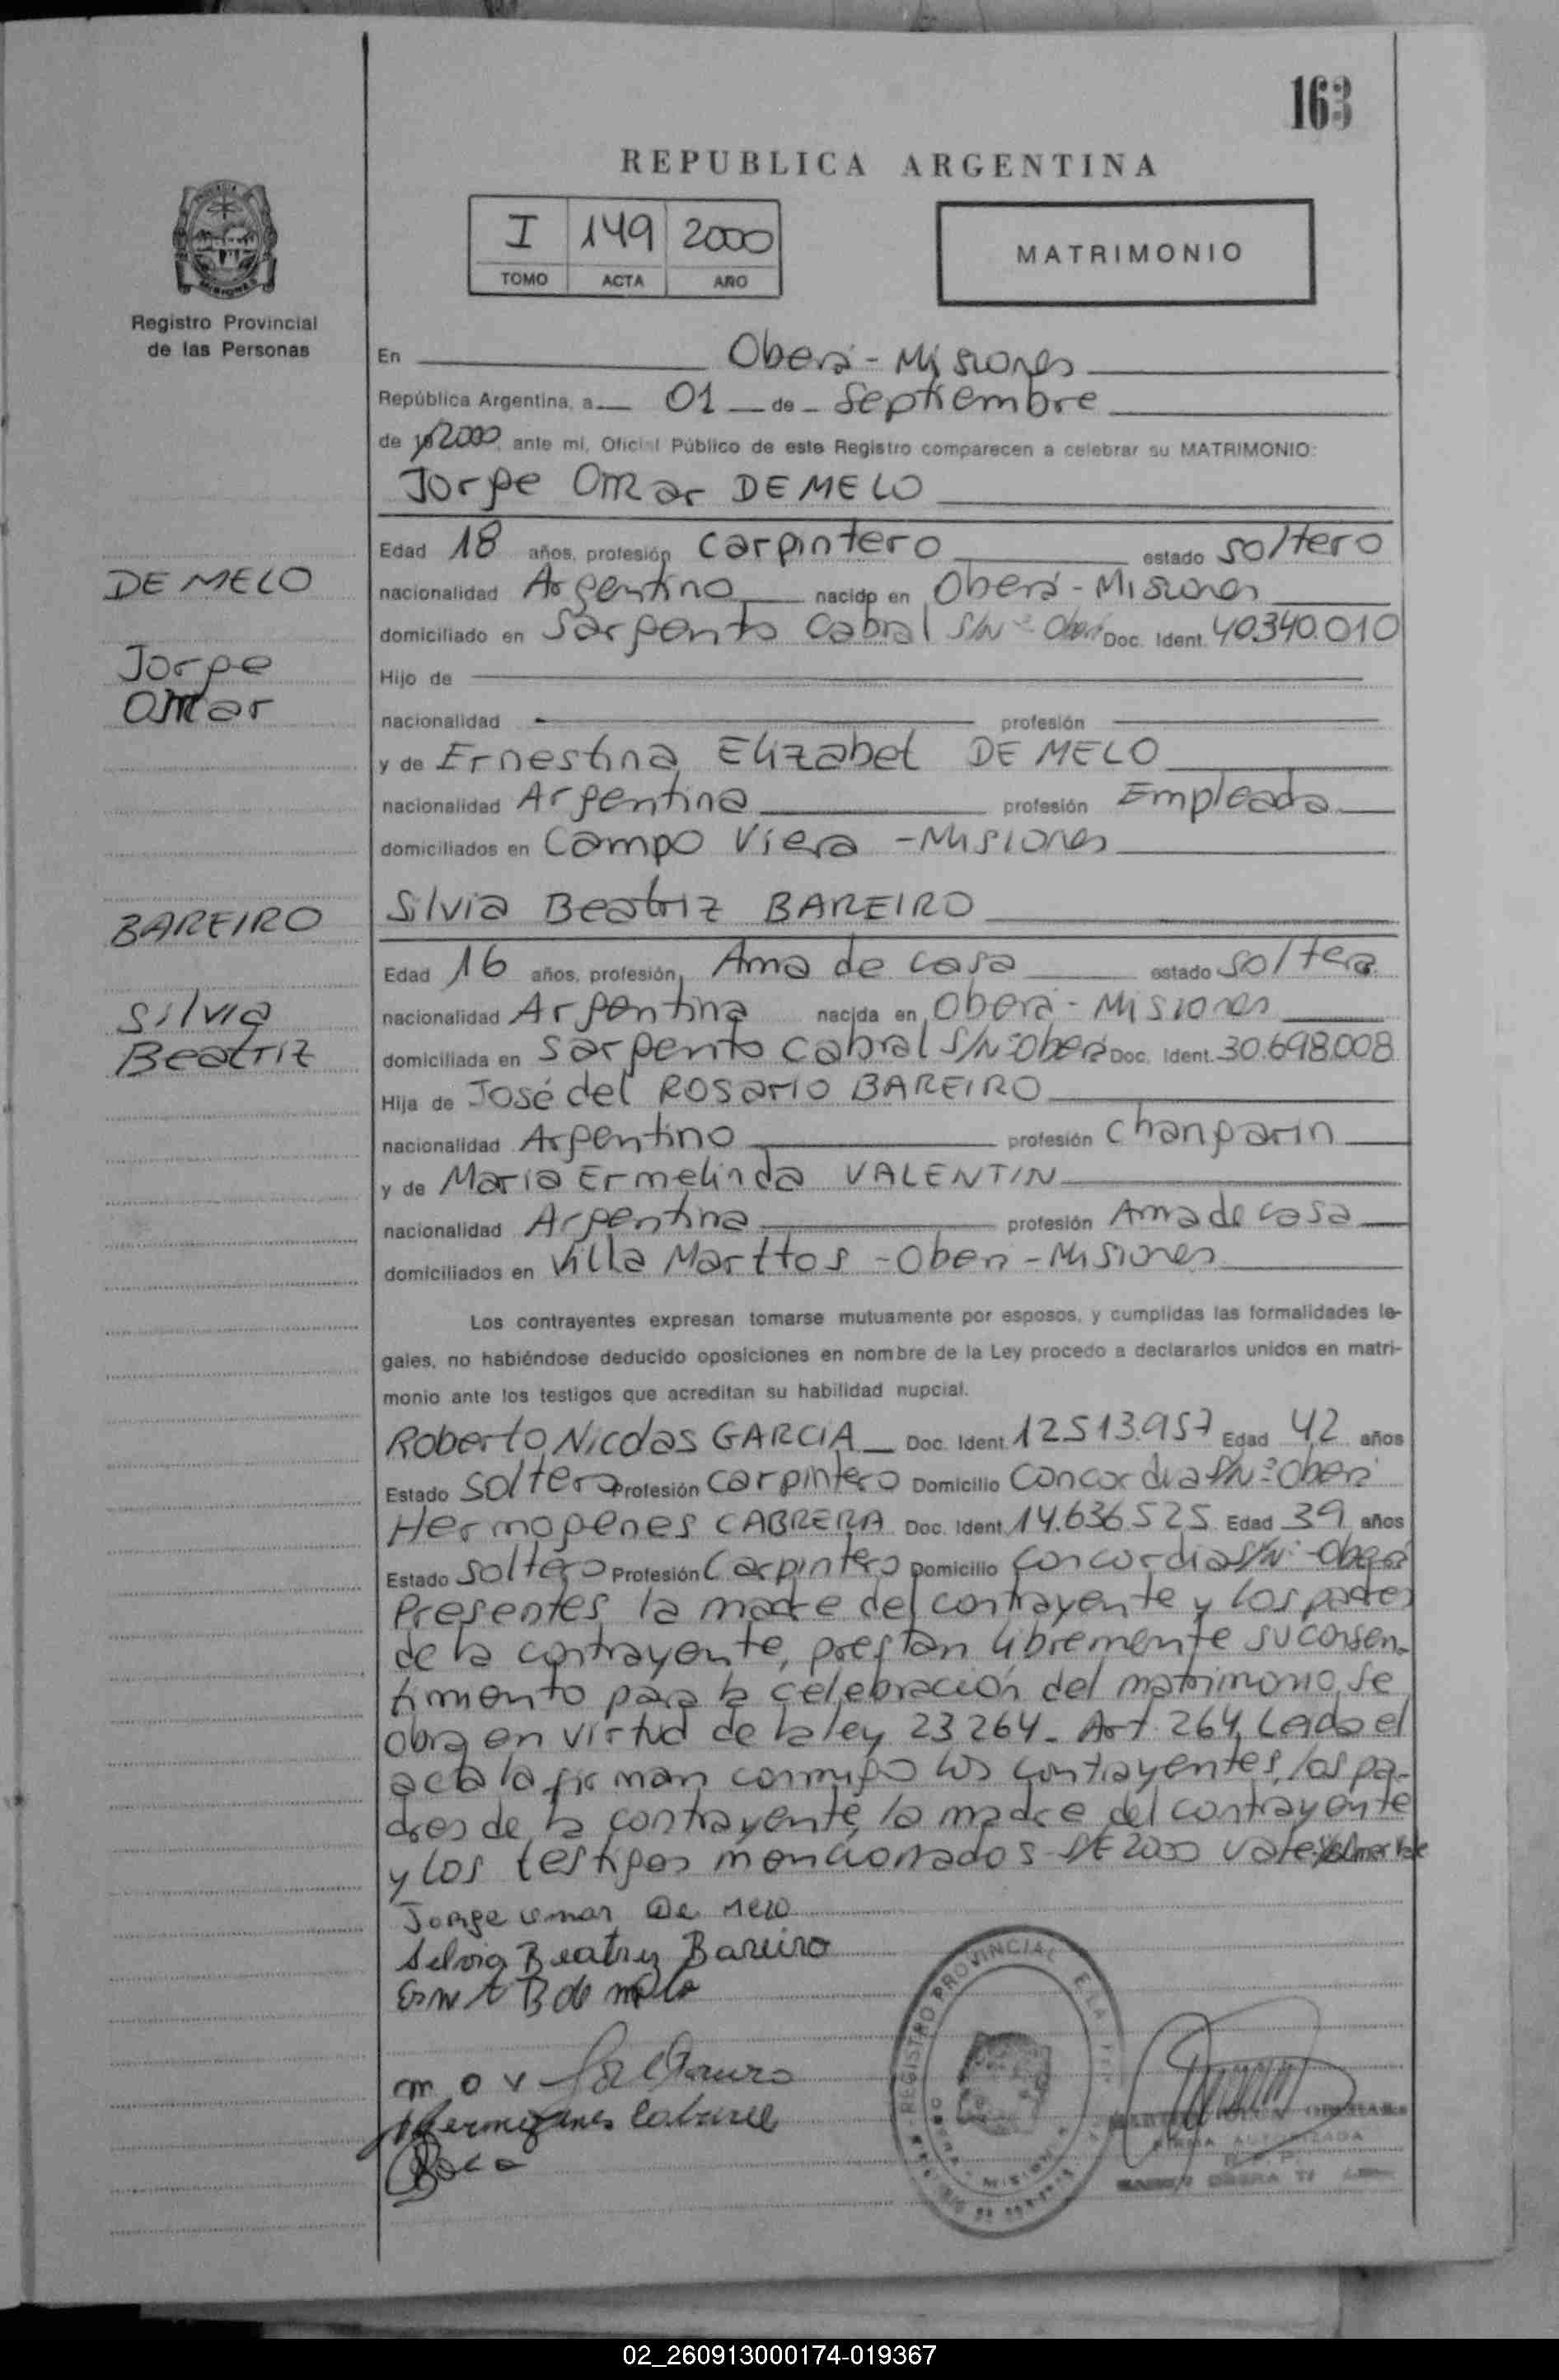 163
REPUBLICA ARGENTINA
I 149 2000
TOMO ACTA AÑO
MATRIMONIO
Registro Provincial
de las Personas
En Oberá - Misiones
República Argentina, a 01 de Septiembre
de 19 2000, ante mí, Oficial Público de este Registro comparecen a celebrar su MATRIMONIO:
Jorge Omar DE MELO
Edad 18 años, profesión carpintero estado soltero
DE MELO
nacionalidad Argentino nacido en Oberá - Misiones
domiciliado en Sargento Cabral S/Nº Oberá Doc. Ident. 40.340.010
Jorge
Hijo de
Omar
nacionalidad profesión
y de Ernestina Elizabet DE MELO
nacionalidad Argentina profesión Empleada
domiciliados en Campo Viera - Misiones
BAREIRO
Silvia Beatriz BAREIRO
Edad 16 años, profesión, Ama de casa estado soltera
Silvia
nacionalidad Argentina nacida en Oberá - Misiones
Beatriz
domiciliada en Sargento Cabral S/Nº Oberá Doc. Ident. 30.698.008
Hija de José del Rosario BAREIRO
nacionalidad Argentino profesión changarin
y de Maria Ermelinda VALENTIN
nacionalidad Argentina profesión Ama de casa
domiciliados en Villa Marttos - Oberá - Misiones
Los contrayentes expresan tomarse mutuamente por esposos, y cumplidas las formalidades le-
gales, no habiéndose deducido oposiciones en nombre de la Ley procedo a declararlos unidos en matri-
monio ante los testigos que acreditan su habilidad nupcial.
Roberto Nicolas GARCIA Doc. Ident. 12.513.957 Edad 42 años
Estado soltero Profesión carpintero Domicilio Concordia S/Nº Oberá
Hermogenes CABRERA Doc. Ident. 14.636.525 Edad 39 años
Estado soltero Profesión Carpintero Domicilio Concordia S/Nº - Oberá
Presentes la madre del contrayente y los padres
de la contrayente, prestan libremente su consen-
timiento para la celebración del matrimonio, se
obra en virtud de la ley 23264 - Art. 264, Leida el
acta la firman conmigo los contrayentes, los pa-
dres de la contrayente, la madre del contrayente
y los testigos mencionados SE 2000 vale Vale
Jorge omar De Melo
Silvia Beatriz Bareiro
B de melo
m o v
Hermogenes Cabrera
REGISTRO PROVINCIAL DE LA
MISIONES
FIRMA AUTORIZADA
02_260913000174-019367